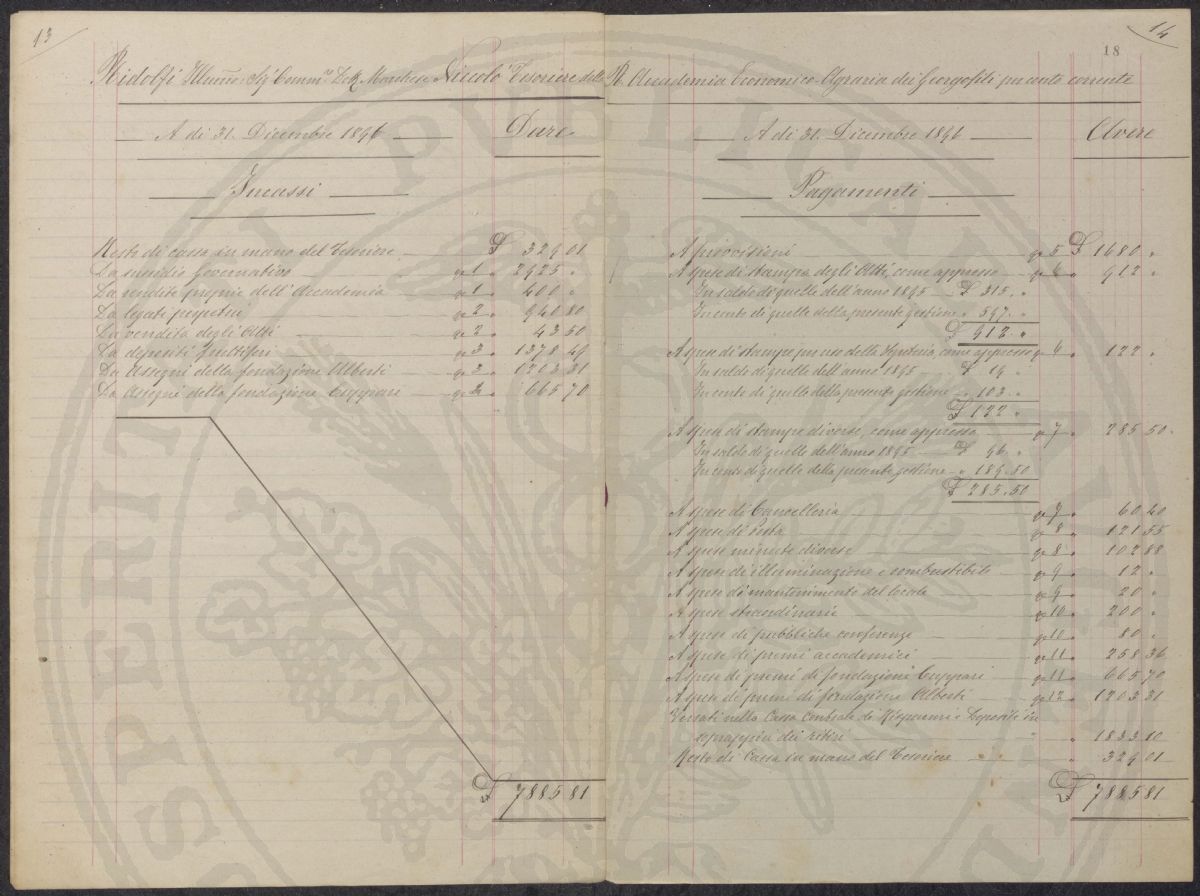 13
Ridolfi Illmo Sig. Comm.e Dott. Marchese Niccolò Tesoriere della
A di 31. Dicembre 1896 Dare
Incassi
Resto di cassa in mano del Tesoriere £ 329 01
Da sussidio Governativo pe 1 " 2925 "
Da rendite proprie dell'Accademia pe 1 " 400 "
Da legati perpetui pe 2 " 940 80
Da vendita degli Atti pe 2 " 43 50
Da depositi fruttiferi pe 3 " 1378 49
Da Assegni della fondazione Alberti pe 3 " 1203 31
Da Assegni della fondazione Cuppari pe 4 " 665 70
£ 7885 81
14
18
R. Accademia Economico-Agraria dei Georgofili per conto corrente
A di 31. Dicembre 1896 Avere
Pagamenti
A provvisioni pe 5 £ 1680 "
A spese di stampa degli Atti, come appresso pe 6 " 912 "
In saldo di quelle dell'anno 1895 £ 315. "
In conto di quelle della presente gestione " 597. "
£ 912. "
A spese di stampe per uso della Segreteria, come appresso pe 6 " 122 "
In saldo di quelle dell'anno 1895 £ 19 "
In conto di quelle della presente gestione " 103. "
£ 122 "
A spese di stampe diverse, come appresso pe 7 " 285 50
In saldo di quelle dell'anno 1895 £ 96. "
In conto di quelle della presente gestione " 189.50
£ 285.50
A spese di Cancelleria pe 7 " 60 40
A spese di Posta pe 8 " 121 55
A spese minute diverse pe 8 " 102 88
A spese di illuminazione e combustibile pe 9 " 12 "
A spese di mantenimento del locale pe 9 " 20 "
A spese straordinarie pe 10 " 200 "
A spese di pubbliche conferenze pe 10 " 80 "
A spese di premi accademici pe 11 " 258 36
A spese di premi di fondazione Cuppari pe 11 " 665 70
A spese di premi di fondazione Alberti pe 12 " 1203 31
Versati nella Cassa Centrale di Risparmi e Depositi in
soprappiù dei ritiri " 1833 10
Resto di Cassa in mano del Tesoriere " 329 01
£ 7885 81